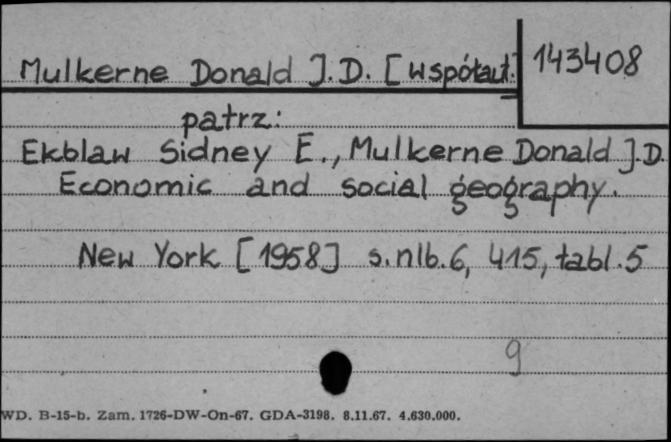 Mulkerne Donald J.D. [współaut.]
143408
patrz:
Ekblaw Sidney E., Mulkerne Donald J.D.
Economic and social geography.
New York [1958] s.nlb.6, 415, tabl.5
9
WD. B-15-b. Zam. 1726-DW-On-67. GDA-3198. 8.11.67. 4.630.000.